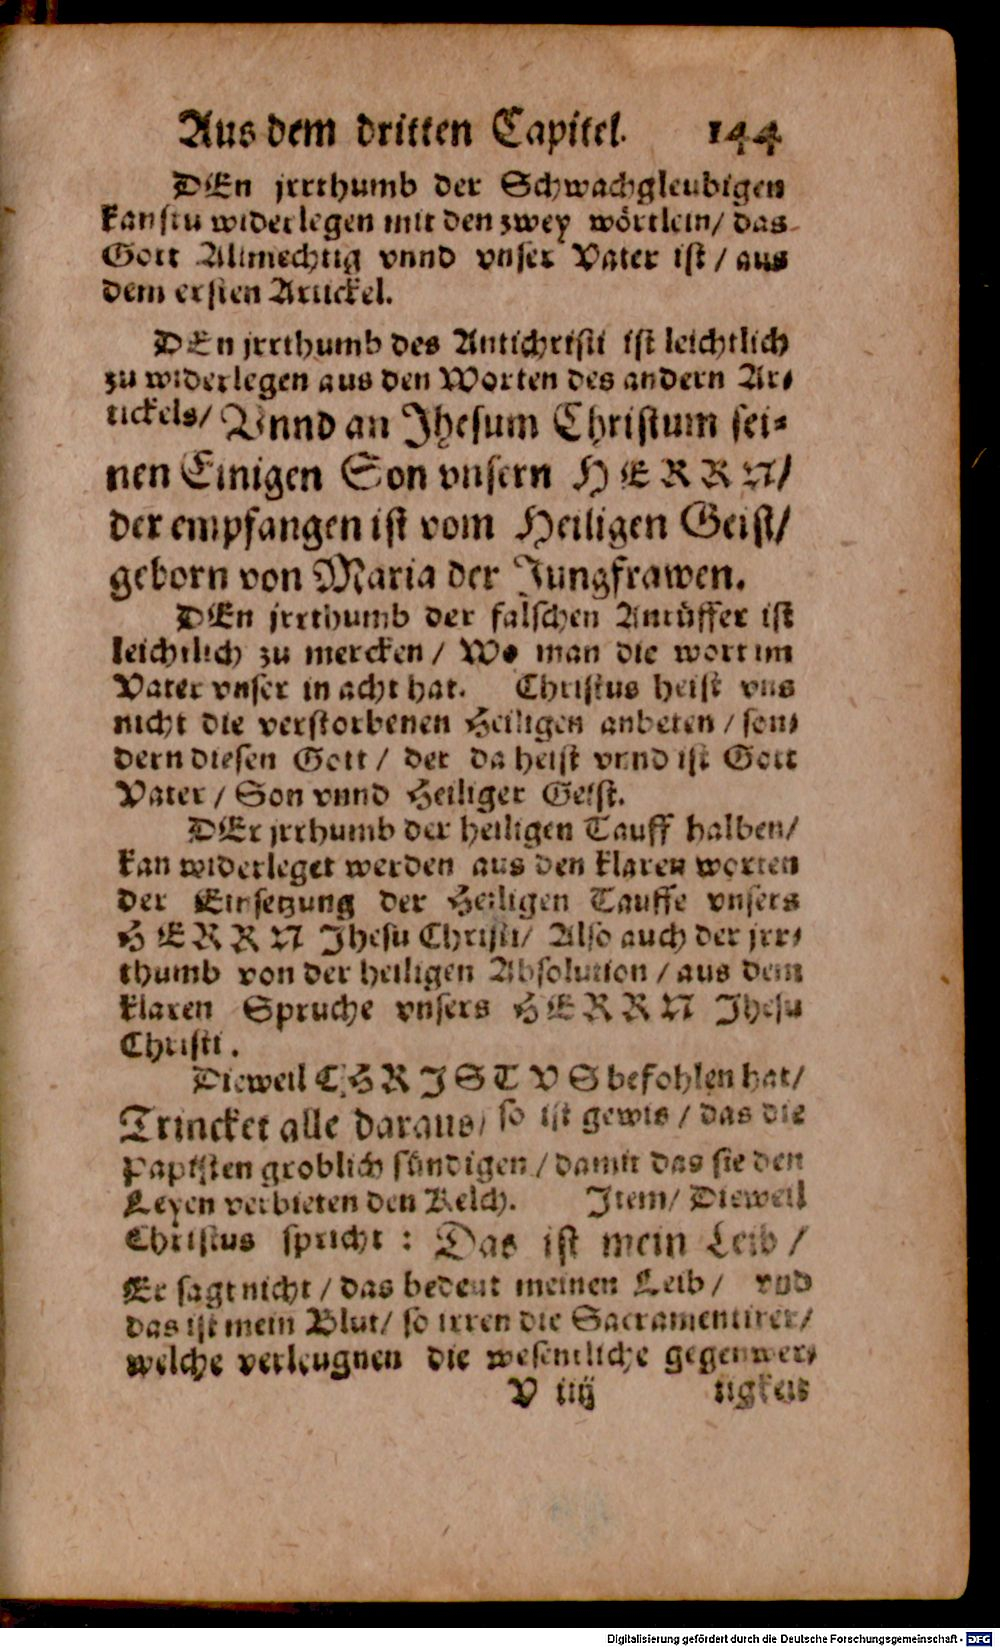 Aus dem dritten Capitel. 144
DEn jrrthumb der Schwachgleubigen
kanstu widerlegen mit den zwey wörtlein/ das
Gott Allmechtig vnnd vnser Vater ist / aus
dem ersten Artickel.
DEn jrrthumb des Antichristi ist leichtlich
zu widerlegen aus den Worten des andern Ar-
tickels/ Vnnd an Jhesum Christum sei-
nen Einigen Son vnsern HERRN/
der empfangen ist vom Heiligen Geist/
geborn von Maria der Jungfrawen.
DEn jrrthumb der falschen Anrüffer ist
leichtlich zu mercken / Wo man die wort im
Vater vnser in acht hat. Christus heist vns
nicht die verstorbenen Heiligen anbeten / son-
dern diesen Gott / der da heist vnnd ist Gott
Vater / Son vnnd Heiliger Geist.
DEr jrrhumb der heiligen Tauff halben/
kan widerleget werden aus den klaren worten
der Einsetzung der Heiligen Tauffe vnsers
HERRN Jhesu Christi/ Also auch der jrr-
thumb von der heiligen Absolution / aus dem
klaren Spruche vnsers HERRN Jhesu
Christi.
Dieweil CHRISTVS befohlen hat/
Trincket alle daraus/ so ist gewis / das die
Papisten groblich sündigen / damit das sie den
Leyen verbieten den Kelch. Item/ Dieweil
Christus spricht : Das ist mein Leib /
Er sagt nicht / das bedeut meinen Leib / vnd
das ist mein Blut/ so irren die Sacramentirer/
welche verleugnen die wesentliche gegenwer-
V iiij tigkeit
Digitalisierung gefördert durch die Deutsche Forschungsgemeinschaft - DFG